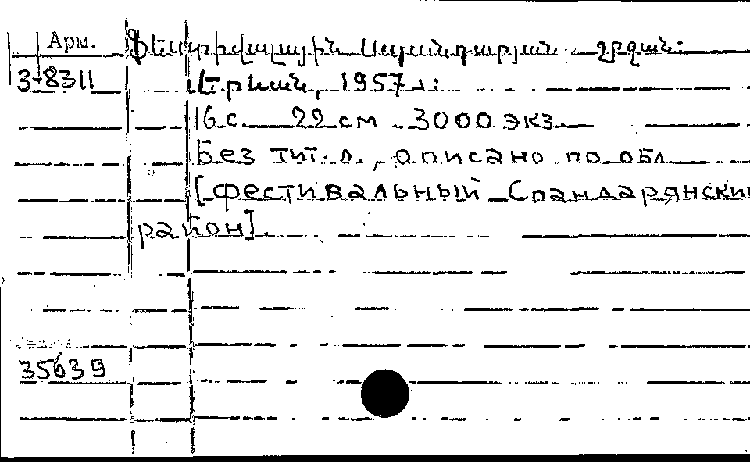 Арм. Ֆեստիվալային Սպանդարյան շրջան:
3-8311 Երևան, 1957 թ:
16 с. 22 см 3000 экз.
Без тит. л., описано по обл
[фестивальный Спандарянский
район].
35639